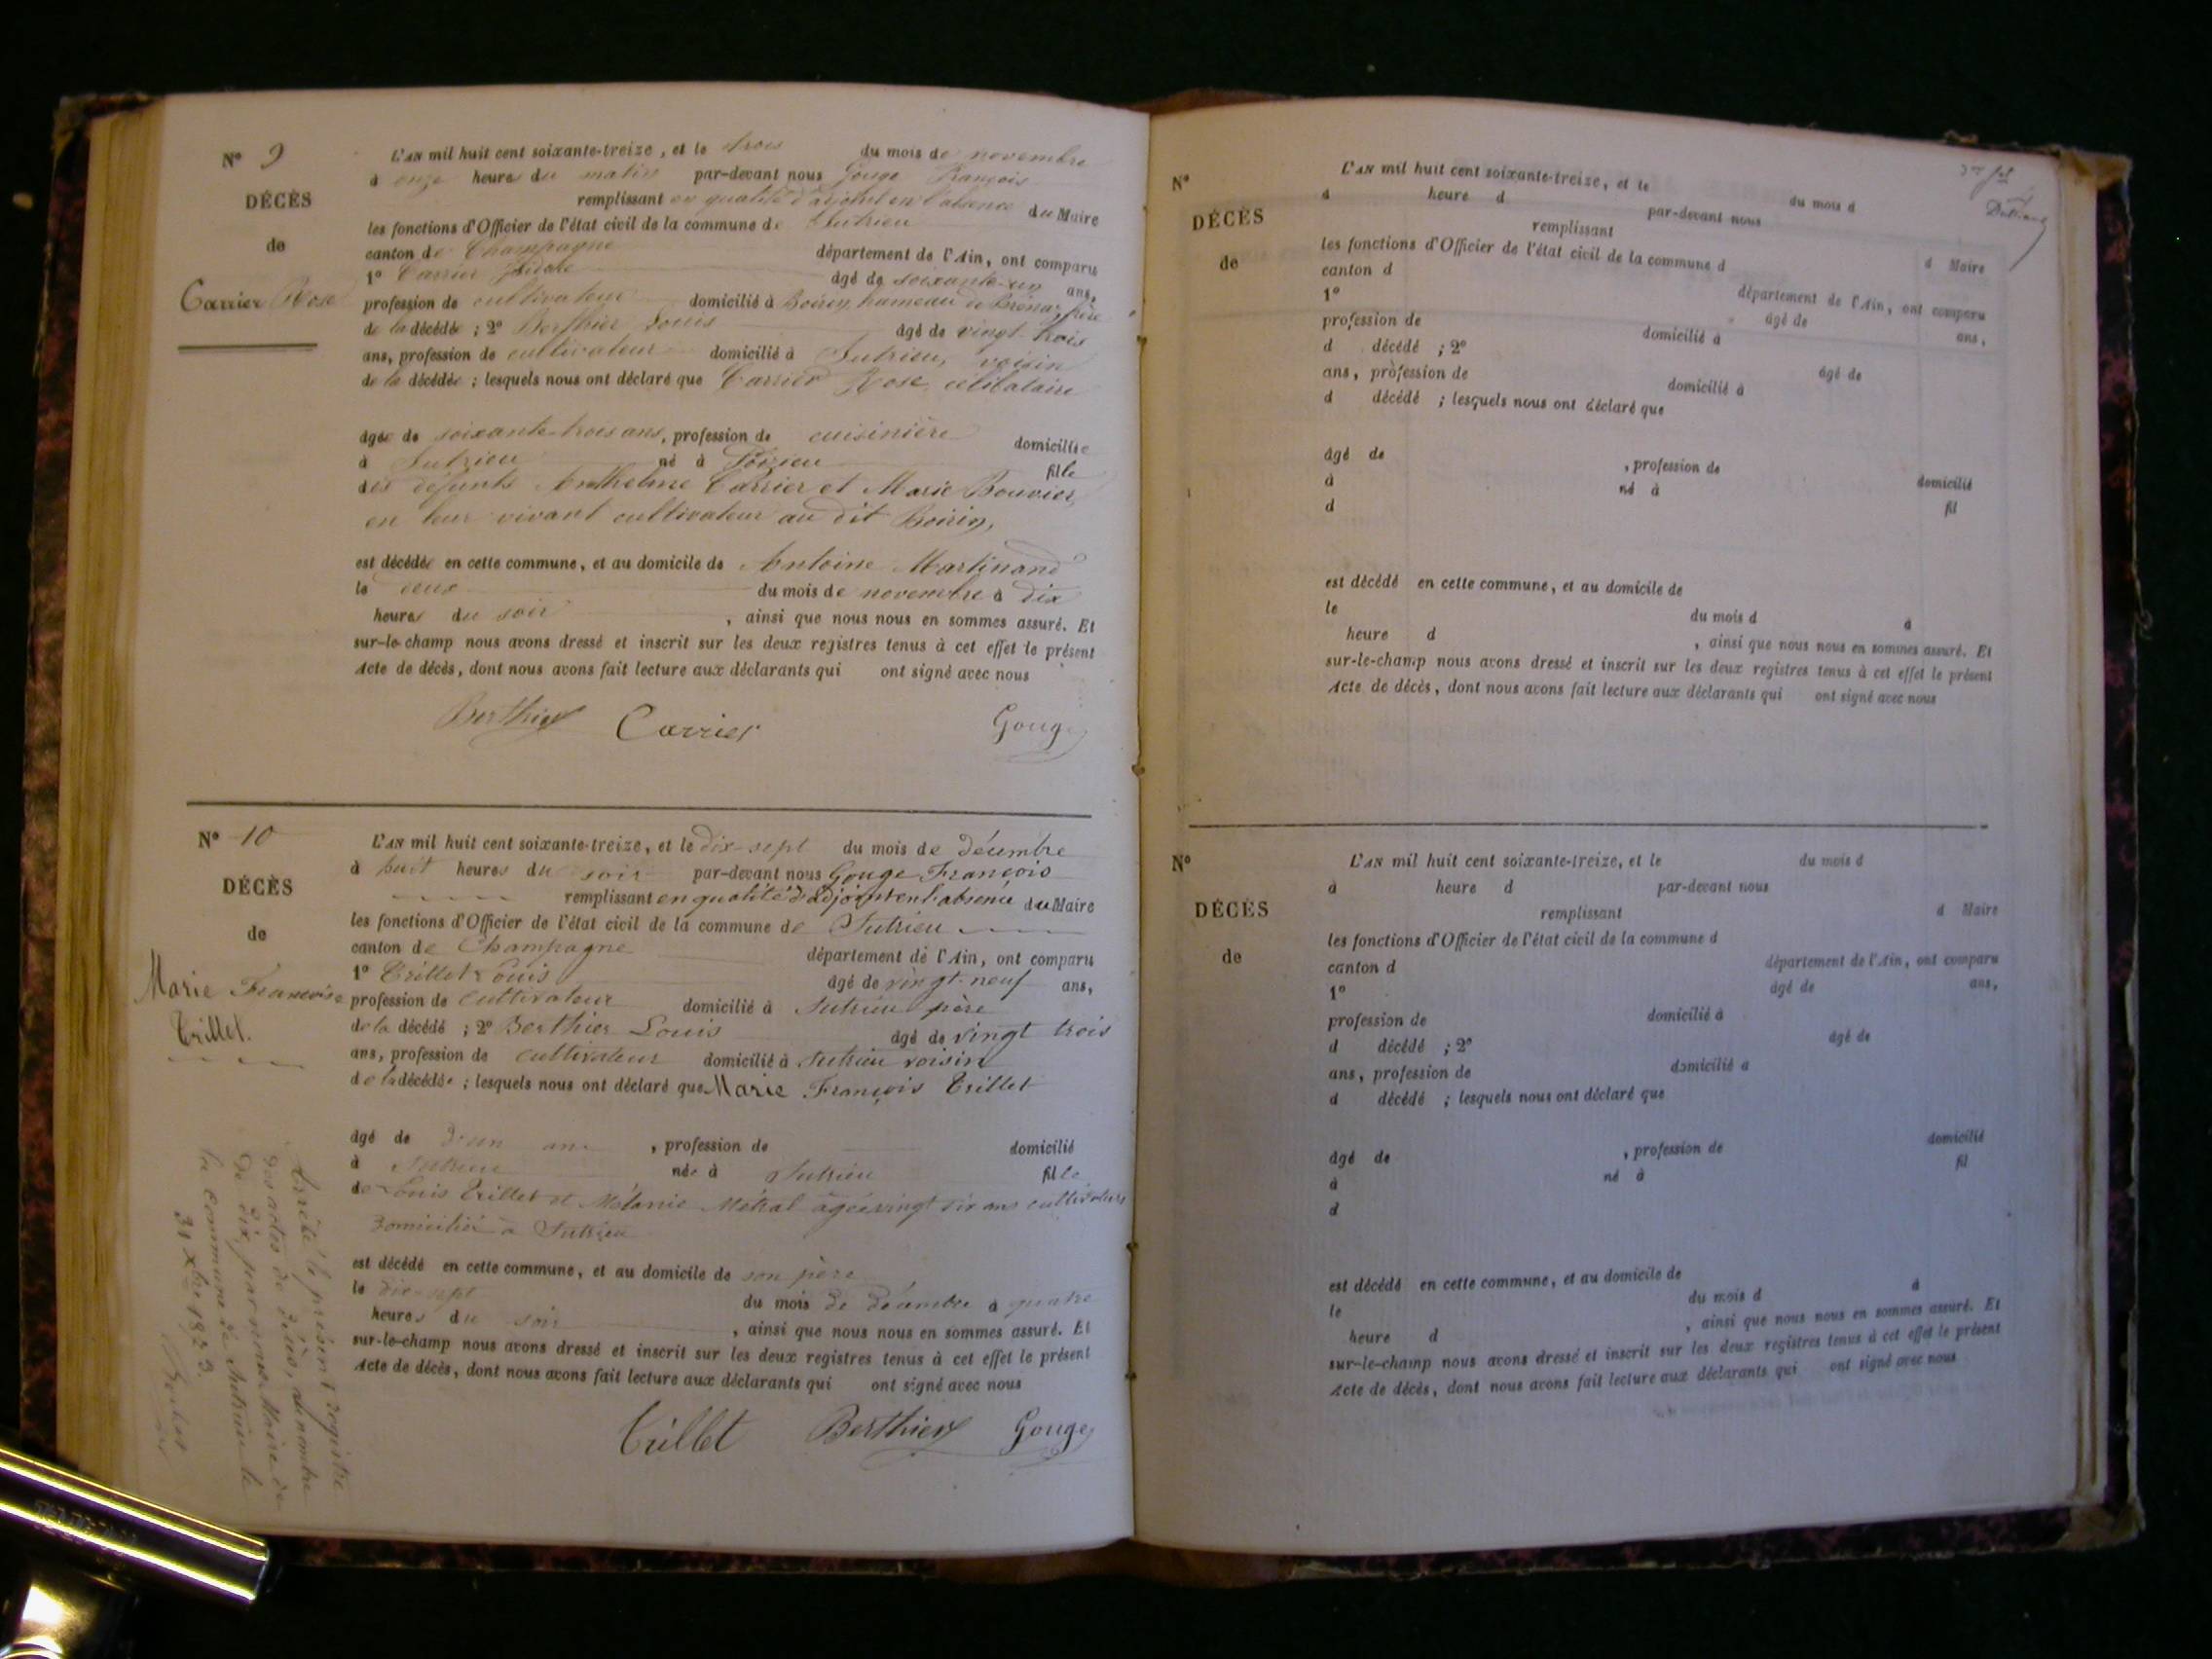 N° 9
DÉCÈS
de
Carrier Rose
L'AN mil huit cent soixante-treize, et le trois du mois de novembre
à onze heures du matin par-devant nous Gouge François
remplissant en qualité d'adjoint en l'absence du Maire
les fonctions d'Officier de l'état civil de la commune de Sutrieu
canton de Champagne département de l'Ain, ont comparu
1° Carrier âgé de soixante-un ans,
profession de cultivateur domicilié à hameau de frère
de la décédée ; 2° Berthier Louis âgé de vingt-trois
ans, profession de cultivateur domicilié à Sutrieu, voisin
de la décédée ; lesquels nous ont déclaré que Carrier Rose célibataire
âgée de soixante-trois ans, profession de cuisinière domiciliée
à Sutrieu né à fille
des défunts Anthelme Carrier et Marie Bouvier,
en leur vivant cultivateur au dit
est décédée en cette commune, et au domicile de Antoine Martinand
le deux du mois de novembre à dix
heures du soir , ainsi que nous nous en sommes assuré. Et
sur-le-champ nous avons dressé et inscrit sur les deux registres tenus à cet effet le présent
Acte de décès, dont nous avons fait lecture aux déclarants qui ont signé avec nous
Berthier Carrier Gouge
N° 10
DÉCÈS
de
Marie Françoise
Trillet.
L'AN mil huit cent soixante-treize, et le dix-sept du mois de décembre
à huit heures du soir par-devant nous Gouge François
remplissant en qualité d'adjoint en l'absence du Maire
les fonctions d'Officier de l'état civil de la commune de Sutrieu
canton de Champagne département de l'Ain, ont comparu
1° Trillet Louis âgé de vingt-neuf ans,
profession de cultivateur domicilié à Sutrieu père
de la décédé ; 2° Berthier Louis âgé de vingt trois
ans, profession de cultivateur domicilié à Sutrieu voisin
de la décédée ; lesquels nous ont déclaré que Marie François Trillet
âgé de d'un an , profession de domicilié
à Sutrieu née à Sutrieu fille
de Louis Trillet et Mélanie Métral âgée vingt six ans cultivateurs
domiciliés à Sutrieu
est décédé en cette commune, et au domicile de son père
le dix-sept du mois de décembre à quatre
heures du soir , ainsi que nous nous en sommes assuré. Et
sur-le-champ nous avons dressé et inscrit sur les deux registres tenus à cet effet le présent
Acte de décès, dont nous avons fait lecture aux déclarants qui ont signé avec nous
Trillet Berthier Gouge
Arrêté le présent registre
des actes de décès, au nombre
de dix, par nous Maire de
la commune de Sutrieu le
31 Xbre 1873.
N°
DÉCÈS
de
L'AN mil huit cent soixante-treize, et le du mois d
à heure d par-devant nous
remplissant d Maire
les fonctions d'Officier de l'état civil de la commune d
canton d département de l'Ain, ont comparu
1° âgé de ans,
profession de domicilié à
d décédé ; 2° âgé de
ans, profession de domicilié à
d décédé ; lesquels nous ont déclaré que
âgé de , profession de domicilié
à né à fil
d
est décédé en cette commune, et au domicile de
le du mois d à
heure d , ainsi que nous nous en sommes assuré. Et
sur-le-champ nous avons dressé et inscrit sur les deux registres tenus à cet effet le présent
Acte de décès, dont nous avons fait lecture aux déclarants qui ont signé avec nous
N°
DÉCÈS
de
L'AN mil huit cent soixante-treize, et le du mois d
à heure d par-devant nous
remplissant d Maire
les fonctions d'Officier de l'état civil de la commune d
canton d département de l'Ain, ont comparu
1° âgé de ans,
profession de domicilié à
d décédé ; 2° âgé de
ans, profession de domicilié à
d décédé ; lesquels nous ont déclaré que
âgé de , profession de domicilié
à né à fil
d
est décédé en cette commune, et au domicile de
le du mois d à
heure d , ainsi que nous nous en sommes assuré. Et
sur-le-champ nous avons dressé et inscrit sur les deux registres tenus à cet effet le présent
Acte de décès, dont nous avons fait lecture aux déclarants qui ont signé avec nous